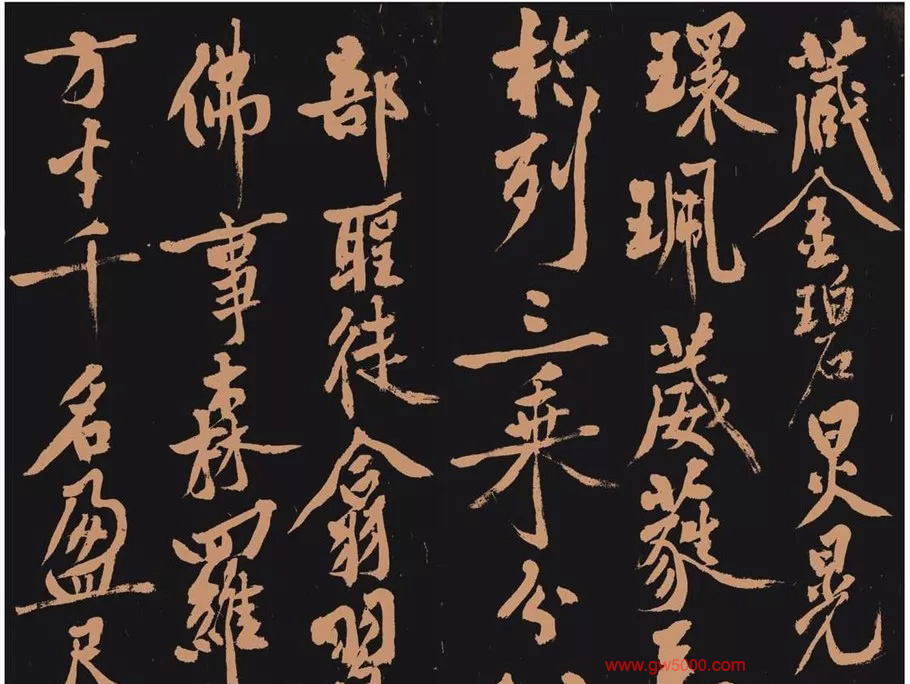 藏金碧炅晃
環珮葳蕤
於列三乘分
部聖徒翕習
佛事森羅
方千名盈尺
www.gw5000.com